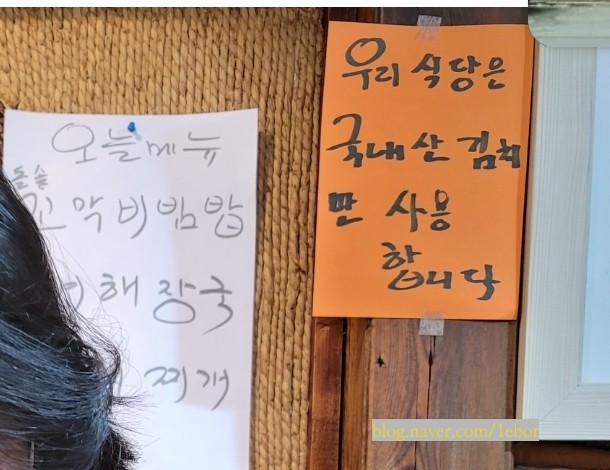 오늘메뉴
돌솥
꼬막비빔밥
해장국
찌개
우리 식당은
국내산 김치
만 사용
합니다
blog.naver.com/1ebor